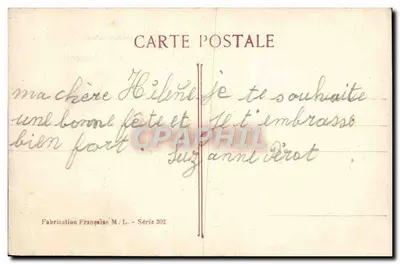 CARTE POSTALE
ma chère Hélène je te souhaite
une bonne fête et Je t'embrasse
bien fort. Suzanne Pérot
CARTE POSTALE
Fabrication Française M. L. - Série 302